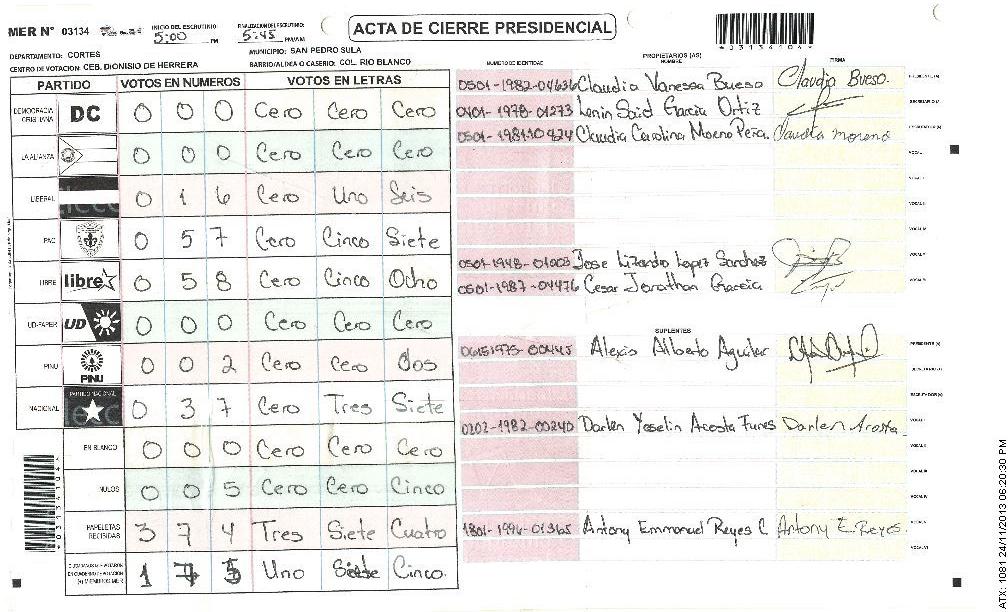 MER Nº 03134
INICIO DEL ESCRUTINIO: 5:00 PM
FINALIZACION DEL ESCRUTINIO: 5:45 PM/AM
ACTA DE CIERRE PRESIDENCIAL
*03134104*
DEPARTAMENTO: CORTES
MUNICIPIO: SAN PEDRO SULA
CENTRO DE VOTACION: CEB. DIONISIO DE HERRERA
BARRIO/ALDEA O CASERIO: COL. RIO BLANCO
PARTIDO VOTOS EN NUMEROS VOTOS EN LETRAS
DEMOCRACIA CRISTIANA DC 0 0 0 Cero Cero Cero
LA ALIANZA 0 0 0 Cero Cero Cero
LIBERAL 0 1 6 Cero Uno Seis
PAC 0 5 7 Cero Cinco Siete
LIBRE libre 0 5 8 Cero Cinco Ocho
UD-FAPER UD 0 0 0 Cero Cero Cero
PINU PINU 0 0 2 Cero Cero dos
NACIONAL PARTIDO NACIONAL 0 3 7 Cero Tres Siete
EN BLANCO 0 0 0 Cero Cero Cero
NULOS 0 0 5 Cero Cero Cinco
PAPELETAS RECIBIDAS 3 7 4 Tres Siete Cuatro
CIUDADANOS QUE VOTARON EN CUADERNO DE VOTACION (+) MIEMBROS MER 1 7 5 Uno Siete Cinco
NUMERO DE IDENTIDAD
PROPIETARIOS (AS)
NOMBRE
FIRMA
0501-1982-04636 Claudia Vanessa Bueso Claudia Bueso. PRESIDENTE (A)
0401-1978-01273 Lenin Said Garcia Ortiz SECRETARIO (A)
0501-198110424 Claudia Carolina Moreno Peña. Claudia moreno ESCRUTADOR (A)
VOCAL I
VOCAL II
VOCAL III
VOCAL IV
0501-1948-01003 Jose Lizardo Lopez Sanchez VOCAL V
0501-1987-04476 Cesar Jonathan Garcia VOCAL VI
SUPLENTES
06151975-00445 Alexis Alberto Aguilar PRESIDENTE (A)
SECRETARIO (A)
ESCRUTADOR (A)
0202-1982-00240 Darlen Yoselin Acosta Funes Darlen Acosta VOCAL I
VOCAL II
VOCAL III
VOCAL IV
1801-1994-01365 Antony Emmanuel Reyes C Antony E. Reyes. VOCAL V
VOCAL VI
ATX: 1081 24/11/2013 06:20:30 PM